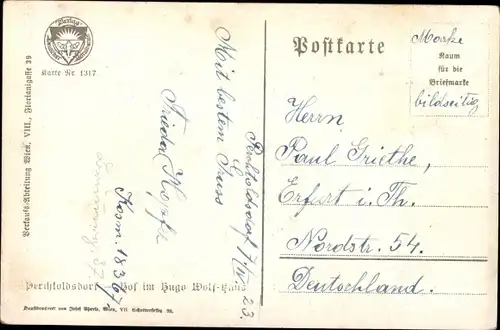 Karte Nr 1317
Verkaufs-Abteilung Wien, VIII., Florianigasse 39
Postkarte
Marke
Raum
für die
Briefmarke
bildseitig
Perchtoldsdorf
Mit bestem
Gruss
Frieda
Herrn
Paul Griethe,
Erfurt i. Th.
Nordstr. 54.
Deutschland.
Perchtoldsdorf Hof im Hugo Wolf-Haus
Kunstdruckerei von Josef Eberle, Wien, VII.